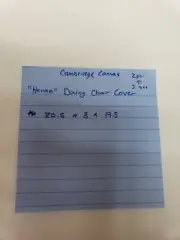 Cambridge Canvas
"Henna" Dining Chair Cover
20.5 x 8 x 19.5